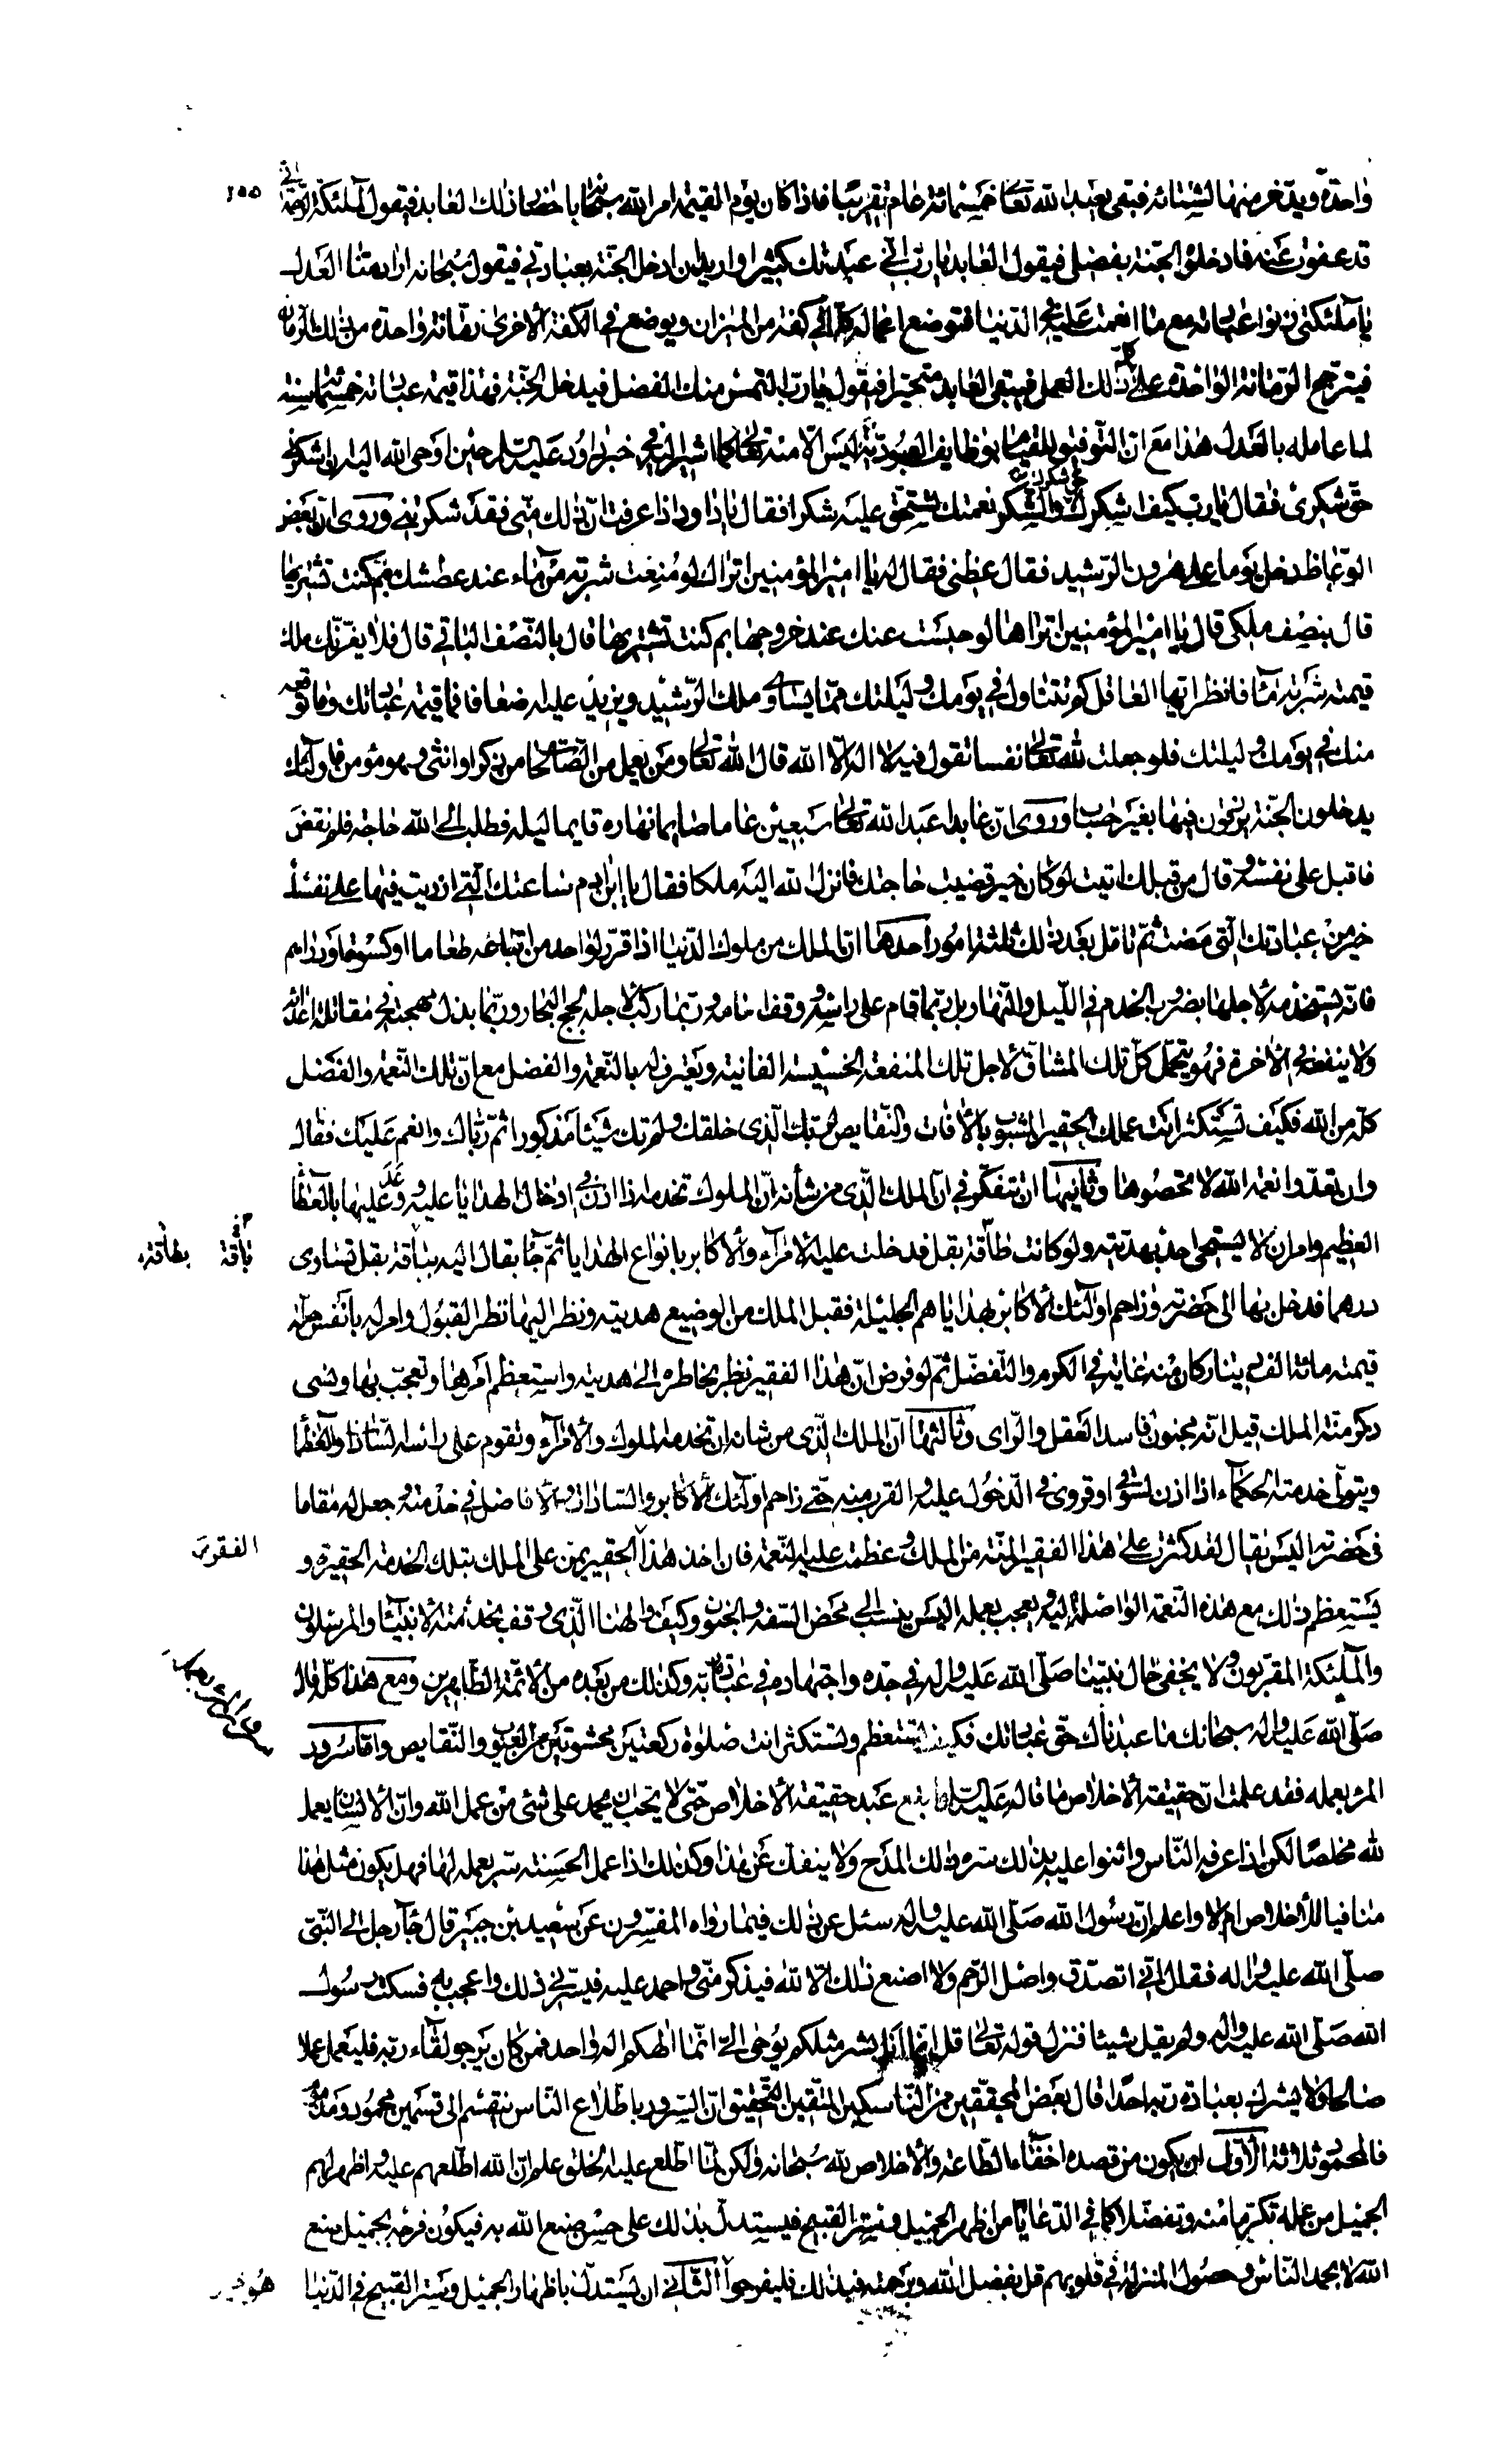 واحدة ويدّخر منها لشتائه فبقى يعبد الله تعالى خمسمائة عام تقريبا فاذا كان يوم القيمة امر الله سبحانه باحضار ذلك العابد فيقول لملئكته انّى
قد عفوت عنه فادخلوه الجنّة بفضلى فيقول العابد يا ربّ انّى عبدتك كثيرا واريد ان ادخل الجنّة بعبادتى فيقول سبحانه اراد منّا العدل
يا ملئكتى زنوا عبادته مع ما انعمت عليه فى الدّنيا فتوضع اعماله كلّها فى كفّة من الميزان ويوضع فى الكفّة الاخرى رمّانة واحدة من تلك الرمان
فيترجح الرّمانة الواحدة على ذلك العمل كلّه فيبقى العابد متحيّرا فيقول يا ربّ التمس منك الفضل فيدخل الجنّة فهذا قيمة عبادة خمسمائة سنة
لما عامله بالعدل هذا مع انّ التّوفيق للقيام بوظايف العبوديّة ليس الّا منه تعالى كما اشير اليه فى خبر داود عليه السلام حين اوحى الله اليه ان اشكرنى
حقّ شكرى فقال يا ربّ كيف اشكرك حق شكرك والشّكر نعمتك تستحق عليه شكرا فقال يا داود اذا عرفت انّ ذلك منّى فقد شكرتنى وروى انّ بعض
الوعّاظ دخل يوما على هرون الرّشيد فقال عظنى فقال له يا امير المؤمنين اتراك لو مُنِعت شربة من ماء عند عطشك بم كنت تشتريها
قال بنصف ملكى قال يا امير المؤمنين اتراها لو حبست عنك عند خروجها بم كنت تشتريها قال بالنّصف الباقى قال فلا يغرّنّك ملك
قيمته شربة ماء فانظر ايّها العاقل كم تتناول فى يومك وليلتك ممّا يساوى ملك الرّشيد ويزيد عليه ضعافا فما قيمة عبادتك وما توقعه
منك فى يومك وليلتك فلو جعلت لله تعالى نفسا تقول فيه لا اله الّا الله قال الله تعالى ومن يعمل من الصّالحات من ذكر او انثى وهو مؤمن فاولئك
يدخلون الجنّة يرزقون فيها بغير حساب وروى انّ عابدا عبد الله تعالى سبعين عاما صايما نهاره قايما ليله فطلب الى الله حاجة فلم تقض
فاقبل على نفسه وقال من قبلك اتيت لو كان خير قضيت حاجتك فانزل الله اليه ملكا فقال يا ابن ادم ساعتك الّتى ازريت فيها على نفسك
خير من عبادتك الّتى مضت ثمّ تامّل بعد ذلك ثلثة امور احدها انّ الملك من ملوك الدّنيا اذا قرّر لواحد من اتباعه طعاما او كسوة او دراهم
فانّه يستخدمه لاجلها بضروب الخدم فى اللّيل والنّهار بل ربّما قام على راسه وقفا مامه وربّما ركب لاجله لجج البحار وربّما بذل مهجته فى مقاتلة اعدائه
ولا ينفعه فى الاخرة فهو يتحمّل كلّ تلك المشاقّ لاجل تلك المنفعة الخسيسة الفانية ويعترف له بالنّعمة والفضل مع انّ تلك النّعمة والفضل
كلّه من الله فكيف تستكثر انت عملك الحقير المشوب بالآفات والنّقايص لربّك الّذى خلقك ولم تك شيئا مذكورا ثم ربّاك وانعم عليك فقال
وان تعدّوا نعمة الله لا تحصوها وثانيها ان تتفكّر فى انّ الملك الّذى من شأنه انّ الملوك تخدمه اذا اذن فى ادخال الهدايا عليه ووعد عليها بالعطاء
العظيم وامر ان لا يستحى احد بهديّته ولو كانت طاقة بقل فدخلت عليه الامراء والاكابر بانواع الهدايا ثمّ جاء بقال اليه بباقة بقل تساوى
درهما فدخل بها الى حضرته وزاحم اولئك الاكابر بهداياهم الجليلة فقبل الملك من الوضيع هديته ونظر اليها نظر القبول وامر له بانفس خلعة
قيمته مائة الف دينار كان منه غاية فى الكرم والتّفضّل ثمّ لو فرض انّ هذا الفقير نظر بخاطره الى هديته واستعظم امرها وتعجّب بها ونسى
ذكر منّة الملك قيل انّه مجنون فاسد العقل والرّاى وثالثها انّ الملك الّذى من شانه ان تخدمه الملوك والامراء وتقوم على رأسه السّادات والعظماء
ويتولّى خدمته الحكماء اذا اذن لسوقى او قروى فى الدّخول عليه والقرب منه حتّى زاحم اولئك الاكابر والسّادات والافاضل فى خدمته وجعل له مقاما
فى حضرته اليس يقال لقد كثرت على هذا الفقير المنّة من الملك وعظمت عليه النّعمة فان اخذ هذا الحقير يمنّ على الملك بتلك الخدمة الحقيرة و
يستعظم ذلك مع هذه النّعمة الواصلة اليه ويعجب بعمله اليس ينسب الى محض السّفه والجنون وكيف والهنا الّذى وقف بخدمته الانبيآء والمرسلون
والملئكة المقرّبون ولا يخفى حال نبيّنا صلّى الله عليه واله فى جدّه واجتهاده فى عباداته وكذلك من بعده من الائمة الطّاهرين ومع هذا كلّه قال
صلّى الله عليه واله سبحانك ما عبدناك حقّ عبادتك فكيف تستعظم وتستكثر انت صلوة ركعتين محشوّتين من العيوب والنّقايص وامّا سرور
المرء بعمله فقد علمت انّ حقيقة الاخلاص ما قاله عليه السلام ما بلغ عبد حقيقة الاخلاص حتّى لا يحبّ ان يحمد على شئ من عمل الله وانّ الانسان يعمل
لله مخلصًا لكن اذا عرفه النّاس واثنوا عليه بذلك سرّه ذلك المدح ولا ينفكّ عن هذا وكذلك اذا عمل الحسنة سرّ بعمله لها فهل يكون مثل هذا
منافيا للاخلاص ام لا واعلم انّ رسول الله صلّى الله عليه واله سئل عن ذلك فيما رواه المفسّرون عن سعيد بن جبير قال جآء رجل الى النّبىّ
صلّى الله عليه واله فقال انّى اتصدّق واصل الرّحم ولا اصنع ذلك الّا لله فيذكر منّى واحمد عليه فيسرّنى ذلك واعجب به فسكت رسول
الله صلّى الله عليه واله ولم يقل شيئا فنزل قوله تعالى قل انّما انا بشر مثلكم يوحى الىّ انّما الهكم اله واحد فمن كان يرجو لقآء ربّه فليعمل عملا
صالحا ولا يشرك بعبادة ربّه احدا قال بعض المحقّقين من النّاسكين المتّقين التّحقيق انّ السّرور باطّلاع النّاس ينقسم الى قسمين محمود ومذموم
فالمحمود ثلاثة الاوّل ان يكون من قصده اخفاء الطّاعة والاخلاص لله سبحانه ولكن لمّا اطّلع عليه الخلق علم انّ الله اطلعهم عليه واظهر لهم
الجميل من عمله تكرّما منه وتفضّلا كما فى الدّعاء يا من اظهر الجميل وستر القبيح فيستدلّ بذلك على حسن صنع الله به فيكون فرحه بجميل صنع
الله لا بحمد النّاس وحصول المنزلة فى قلوبهم قل بفضل الله وبرحمته فبذلك فليفرحوا الثّانى ان يستدلّ باظهار الجميل وستر القبيح فى الدّنيا
باقة
بطاقة
هو خير